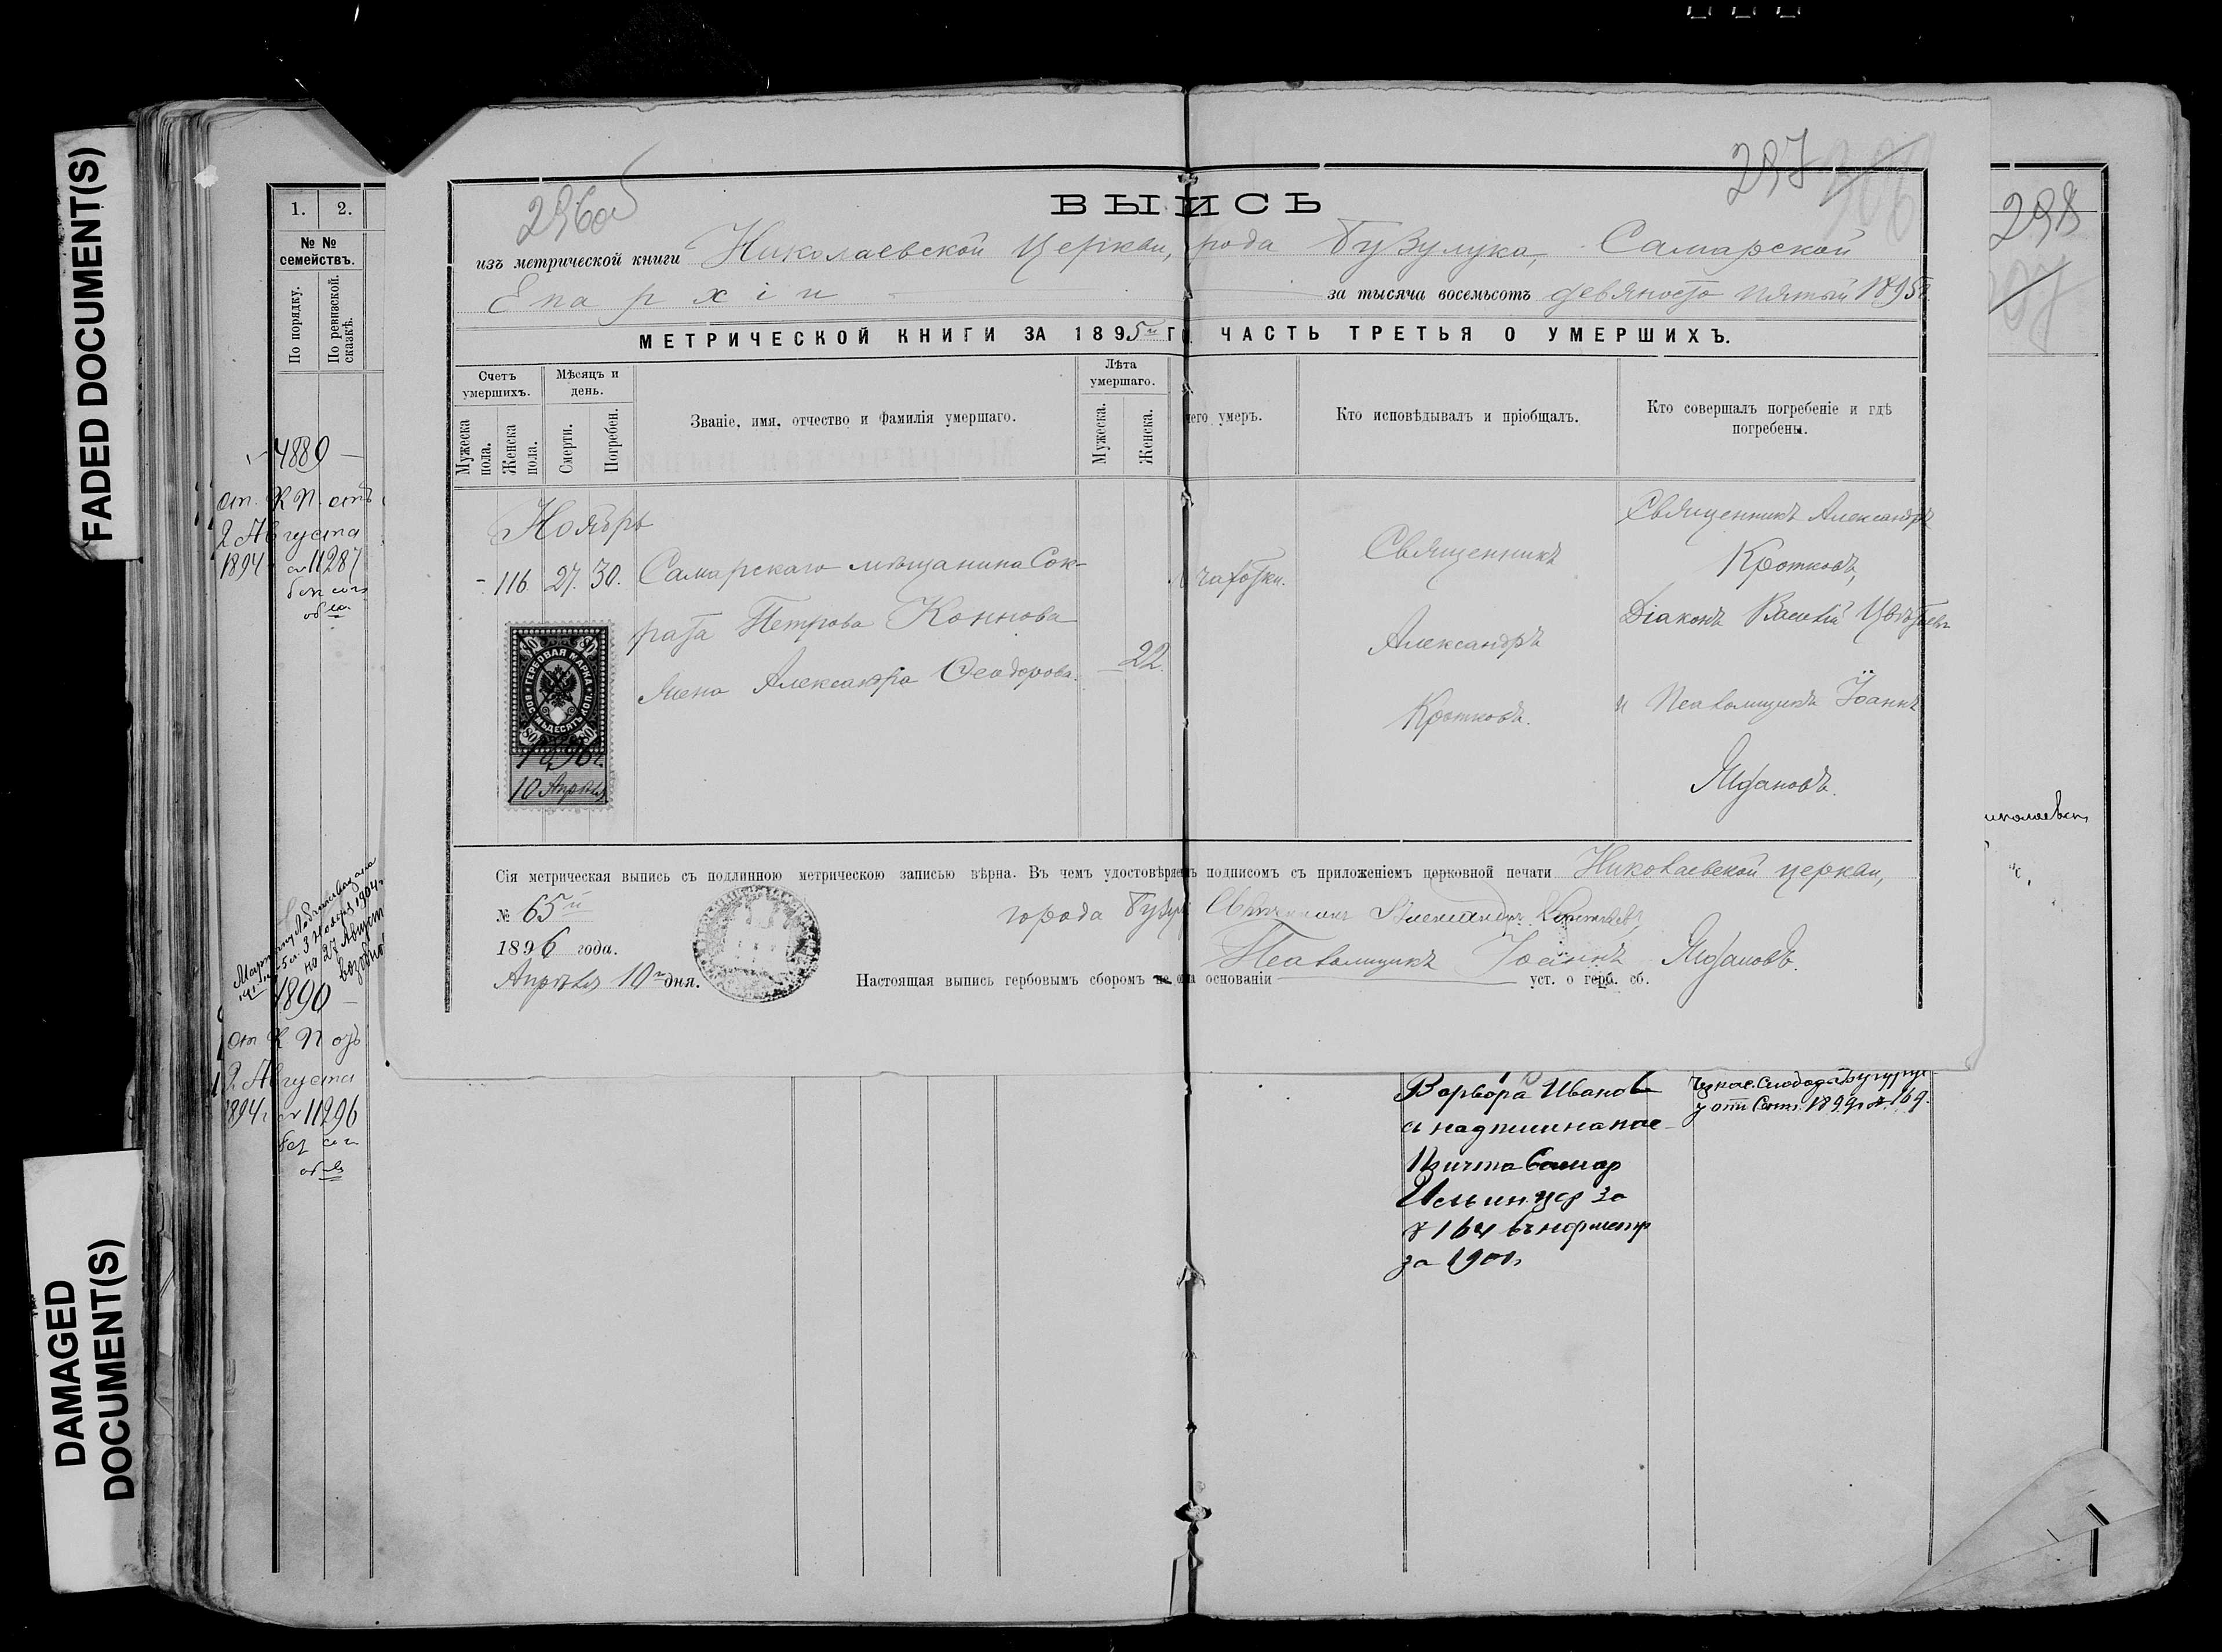 FADED DOCUMENT(S)
DAMAGED
DOCUMENT(S)
1. 2.
№ №
семействъ.
По порядку.
По ревизской
сказкѣ.
4889
2 Августа
1894 11287
1890
2 Августа
1894 г 11296
297
298
296об
ВЫПИСЬ
изъ метрической книги Николаевской церкви, города Бузулука, Самарской
Епархіи за тысяча восемьсотъ девяносто пятый 1895 г.
МЕТРИЧЕСКОЙ КНИГИ ЗА 1895й Г. ЧАСТЬ ТРЕТЬЯ О УМЕРШИХЪ.
Счетъ
умершихъ.
Мужеска
пола.
Женска
пола.
Мѣсяцъ и
день.
Смерти.
Погребен.
Званіе, имя, отчество и Фамилія умершаго.
Лѣта
умершаго.
Мужеска.
Женска.
чего умеръ.
Кто исповѣдывалъ и пріобщалъ.
Кто совершалъ погребеніе и гдѣ
погребены.
Ноябрь
- 116 27. 30. Самарскаго мѣщанина Сок-
рата Петрова Коннова
жена Александра Ѳеодорова. 22.
чахотки.
Священникъ
Александръ
Кротковъ.
Священникъ Александръ
Кротковъ,
Діаконъ Василій
и Псаломщикъ Іоаннъ
ГЕРБОВАЯ МАРКА
ВОСЕМЬДЕСЯТЪ КОП.
80 80
80 80
1896 г.
10 Апрѣля
Сія метрическая выпись съ подлинною метрическою записью вѣрна. Въ чемъ удостовѣряемъ подписомъ съ приложеніемъ церковной печати Николаевской церкви,
№ 65й
города Бузул Священникъ Александръ Кротковъ,
1896 года.
Псаломщикъ Іоаннъ
Апрѣля 10го дня.
Настоящая выпись гербовымъ сбором на основаніи уст. о герб. сб.
Варвора Иванов
Самар
за
№ 164
за 1901